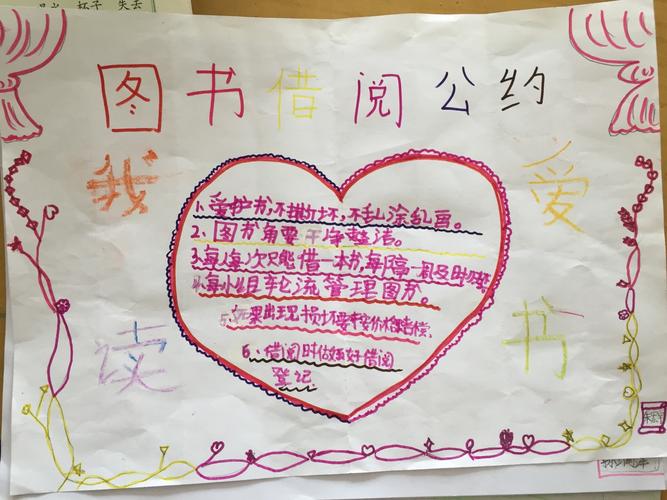 杯子 失去
图书借阅公约
我 爱
读 书
1、爱护书,不撕坏,不乱涂乱画。
2、图书角要干净整洁。
3、每人每次只能借一本书,每隔一周及时归还
4、每小组轮流管理图书。
5、如果出现损坏要按价格赔偿
6、借阅时做好借阅
登记